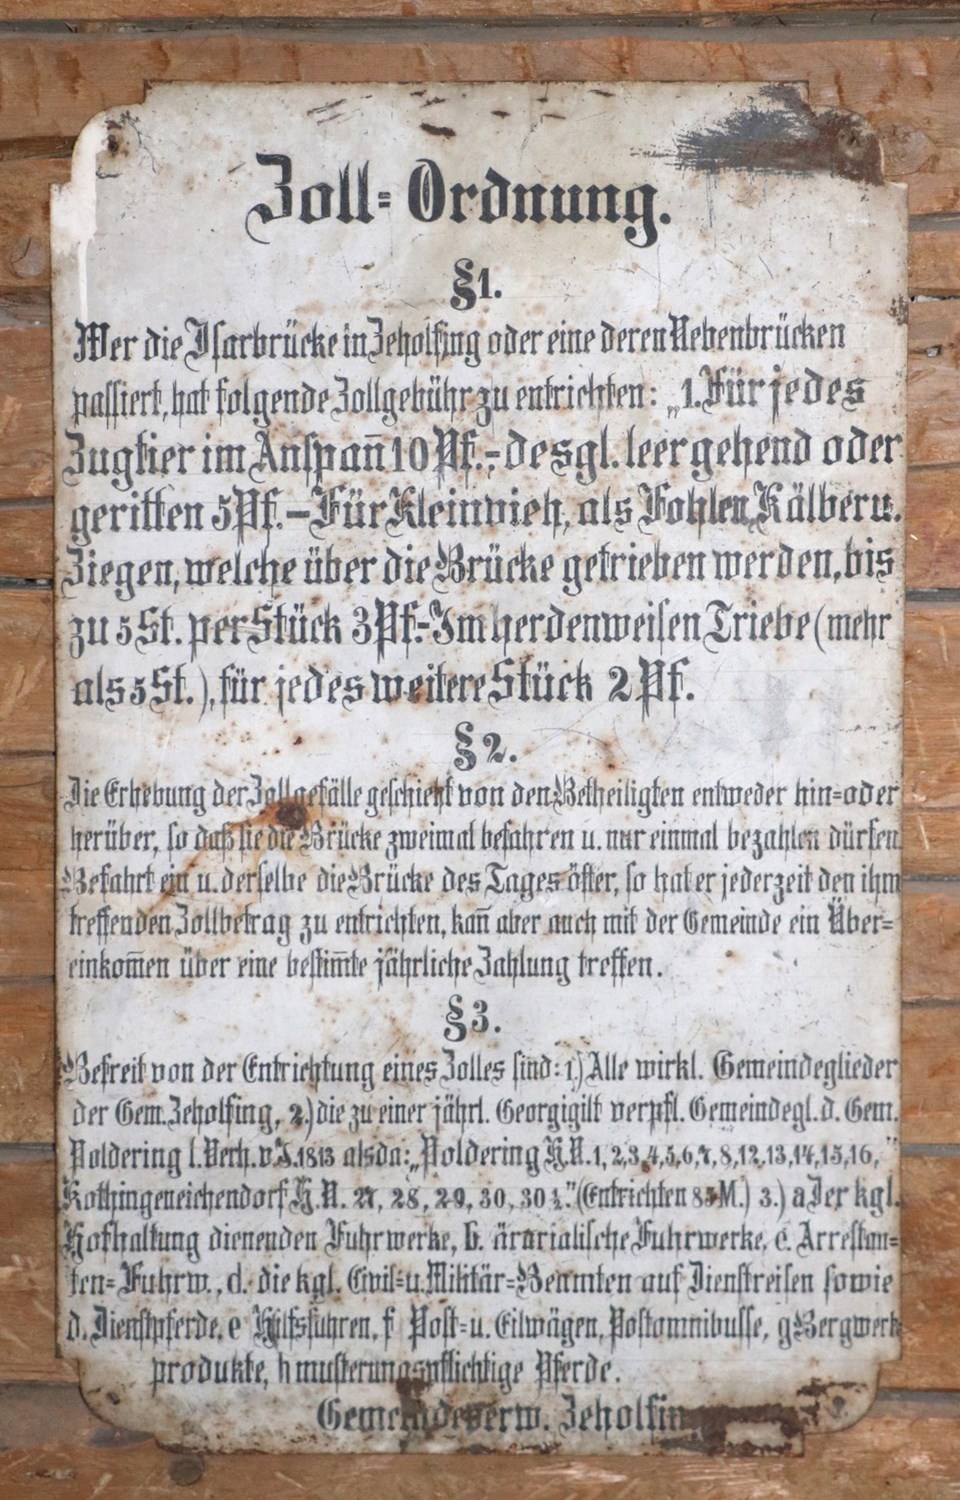 Zoll-Ordnung.
§1.
Wer die Isarbrücke in Zeholfing oder eine deren Nebenbrücken
passiert, hat folgende Zollgebühr zu entrichten: „1. Für jedes
Zugtier im Anspan̄ 10 Pf.- desgl. leer gehend oder
geritten 5 Pf. – Für Kleinvieh, als Fohlen, Kälber u.
Ziegen, welche über die Brücke getrieben werden, bis
zu 5 St. per Stück 3 Pf.- Im herdenweisen Triebe (mehr
als 5 St.), für jedes weitere Stück 2 Pf.
§2.
Die Erhebung der Zollgefälle geschieht von den Betheiligten entweder hin=oder
herüber, so daß sie die Brücke zweimal befahren u. nur einmal bezahlen dürfen.
Befährt ein u. derselbe die Brücke des Tages öfter, so hat er jederzeit den ihm
treffenden Zollbetrag zu entrichten, kan̄ aber auch mit der Gemeinde ein Über=
einkom̄en über eine bestim̄te jährliche Zahlung treffen.
§3.
Befreit von der Entrichtung eines Zolles sind: 1.) Alle wirkl. Gemeindeglieder
der Gem. Zeholfing, 2.) die zu einer jährl. Georgigilt verpfl. Gemeindegl. d. Gem.
Poldering l. Verh. v. J. 1813 als da: „Poldering H.N. 1, 2, 3, 4, 5, 6, 7, 8, 12, 13, 14, 15, 16,"
Kothingeneichendorf H.N. 27, 28, 29, 30, 30½." (Entrichten 85 M.) 3.) a Der kgl.
Hofhaltung dienenden Fuhrwerke, b. ärarialische Fuhrwerke, c. Arrestan=
ten=Fuhrw., d. die kgl. Civil=u. Militär=Beamten auf Dienstreisen sowie
d. Dienstpferde, e Hilfsfuhren, f Post=u. Eilwägen, Postomnibusse, g Bergwerk
produkte, h musterungspflichtige Pferde.
Gemeindeverw. Zeholfing